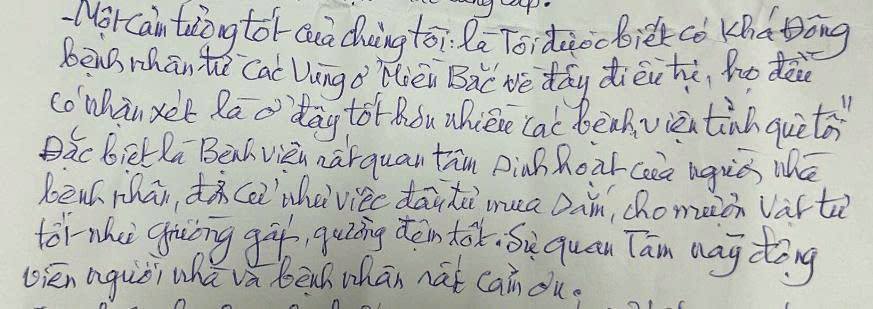 -Một cảm tưởng tốt của chúng tôi: là Tôi được biết có khá Đông
bệnh nhân từ các Vùng ở Miền Bắc về đây điều trị, họ đều
có nhận xét là ở đây tốt hơn nhiều các bệnh viện tỉnh quê tôi"
Đặc biệt là Bệnh viện rất quan tâm sinh hoạt của người nhà
bệnh nhân, như việc đầu tư mua sắm, cho mượn vật tư
tốt như giường gấp, giường đệm tốt. Sự quan Tâm này động
viên người nhà và bệnh nhân rất cảm ơn.